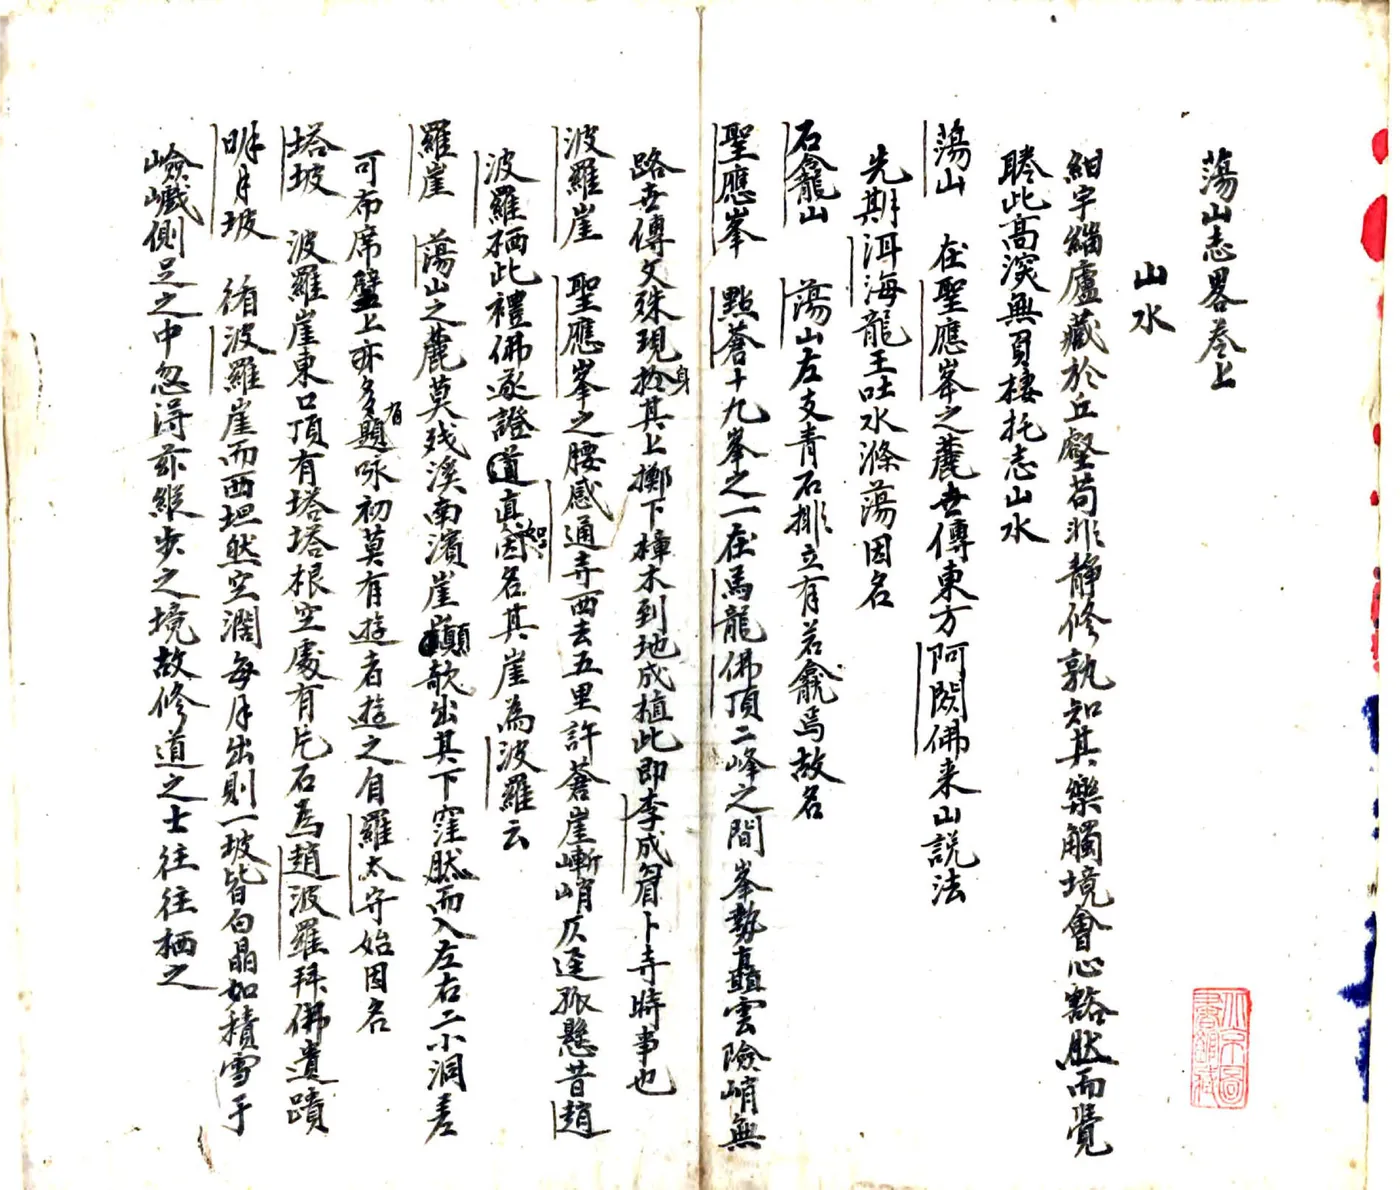 蕩山志畧卷上
山水
紺宇緇廬藏於丘壑苟非静修孰知其樂觸境會心豁然而覺
睠此高深無負棲托志山水
蕩山 在聖應峯之麓世傳東方阿閦佛来山説法
先期洱海龍王吐水滌蕩因名
石龕山 蕩山左支青石排立有若龕焉故名
聖應峯 點蒼十九峯之一在馬龍佛頂二峰之間峯勢矗雲險峭無
路世傳文殊現身於其上擲下樟木到地成植此即李成眉卜寺時事也
波羅崖 聖應峯之腰感通寺西去五里許蒼崖嶄峭仄逕孤懸昔趙
波羅栖此禮佛遂證道真因名其崖為波羅云
羅崖 蕩山之麓莫残溪南濱崖巔欹出其下窪然而入左右二小洞差
可布席壁上亦多有題咏初莫有遊者遊之自羅太守始因名
塔坡 波羅崖東口頂有塔塔根空處有片石為趙波羅拜佛遺蹟
明月坡 循波羅崖而西坦然空濶每月出則一坡皆白晶如積雪于
嶮巇側足之中忽得莎縱步之境故修道之士往往栖之